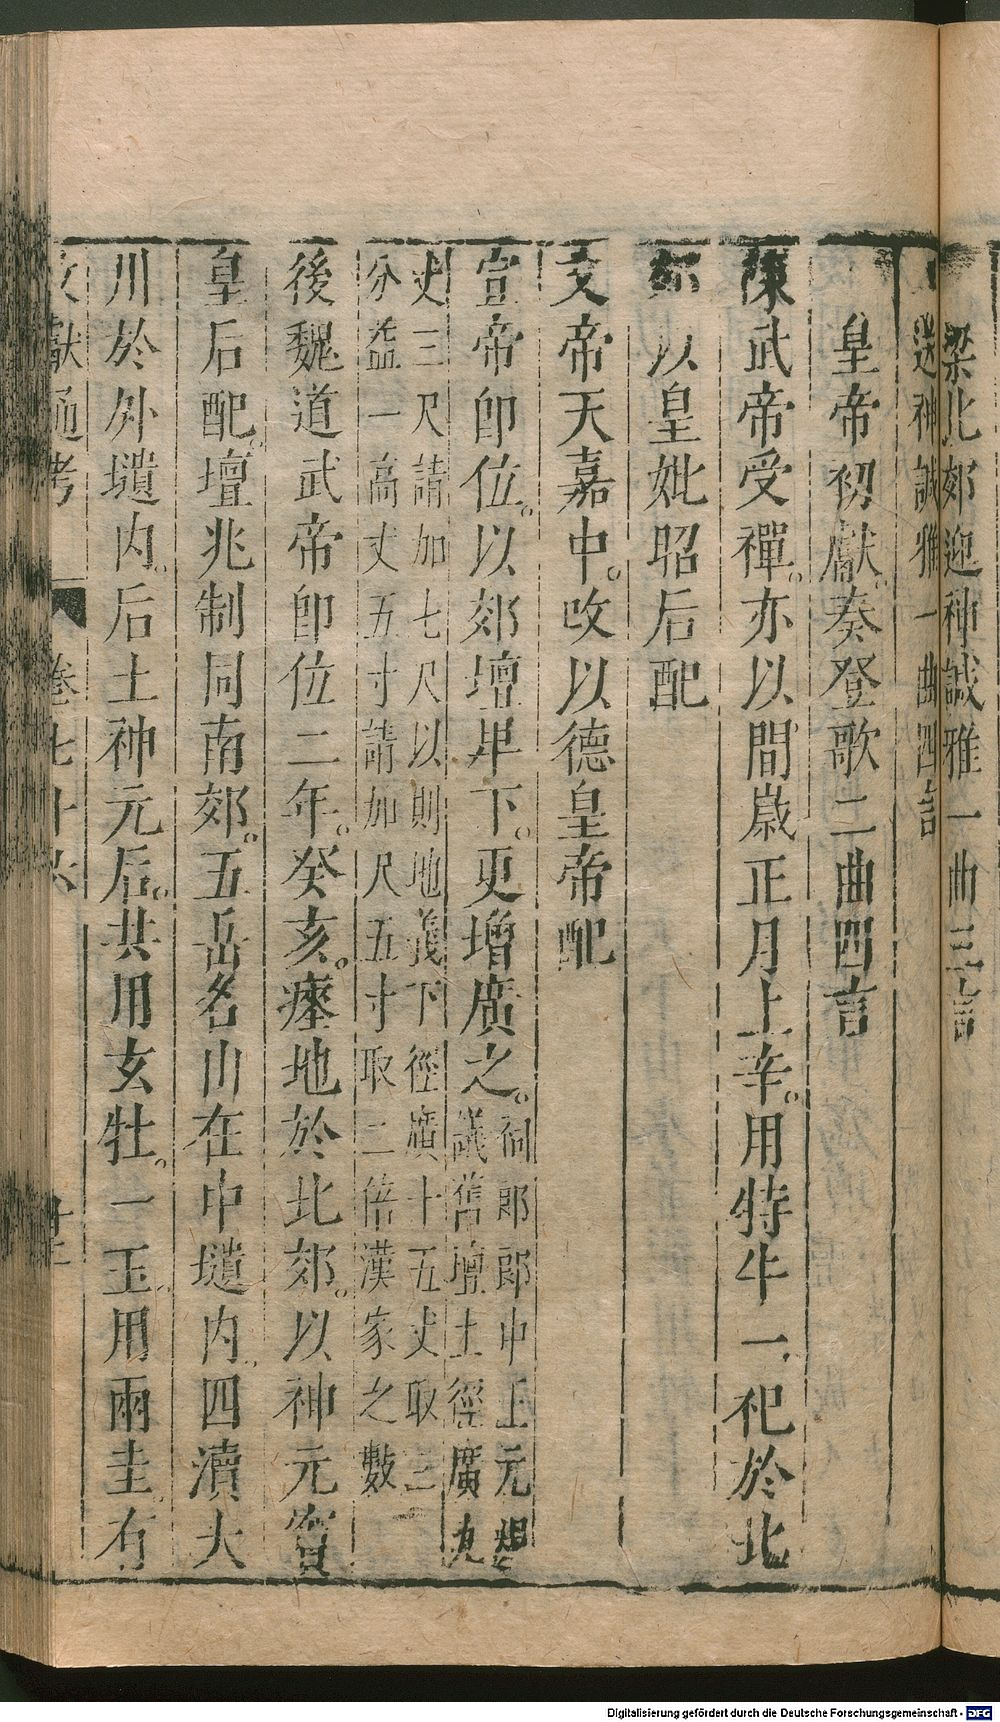 梁北郊迎神諴雅一曲三言
送神諴雅一曲四言
皇帝初獻。奏登歌二曲四言
陳武帝受禪。亦以間歲正月上辛。用特牛一、祀於北
郊以皇妣昭后配
文帝天嘉中。改以德皇帝配
宣帝卽位。以郊壇卑下。更增廣之。祠郎郎中王元規
議舊壇土徑廣九
丈三尺請加七尺以則地義下徑廣十五丈取三
分益一高丈五寸請加尺五寸取二倍漢家之數
後魏道武帝卽位二年。癸亥。瘞地於北郊。以神元竇
皇后配。壇兆制同南郊。五岳名山在中壝内、四瀆大
川於外壝内。后土神元后。共用玄牡。一玉、用兩圭、有
文獻通考 卷七十六
Digitalisierung gefördert durch die Deutsche Forschungsgemeinschaft - DFG